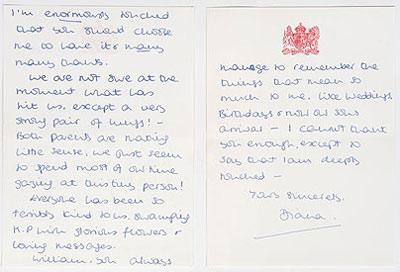 I'm enormously touched
that you should choose
me to have it & many
many thanks.
We are not sure at the
moment what has
hit us, except a very
strong pair of lungs! –
Both parents are making
little sense, we just seem
to spend most of our time
gazing at this tiny person!
Everyone has been so
terribly kind to us, swamping
K.P with glorious flowers &
loving messages.
William. You always
manage to remember the
things that mean so
much to me. Like Weddings
Birthdays & now our sons
arrival – I cannot thank
you enough, except to
say that I am deeply
touched –
Yours sincerely,
Diana.